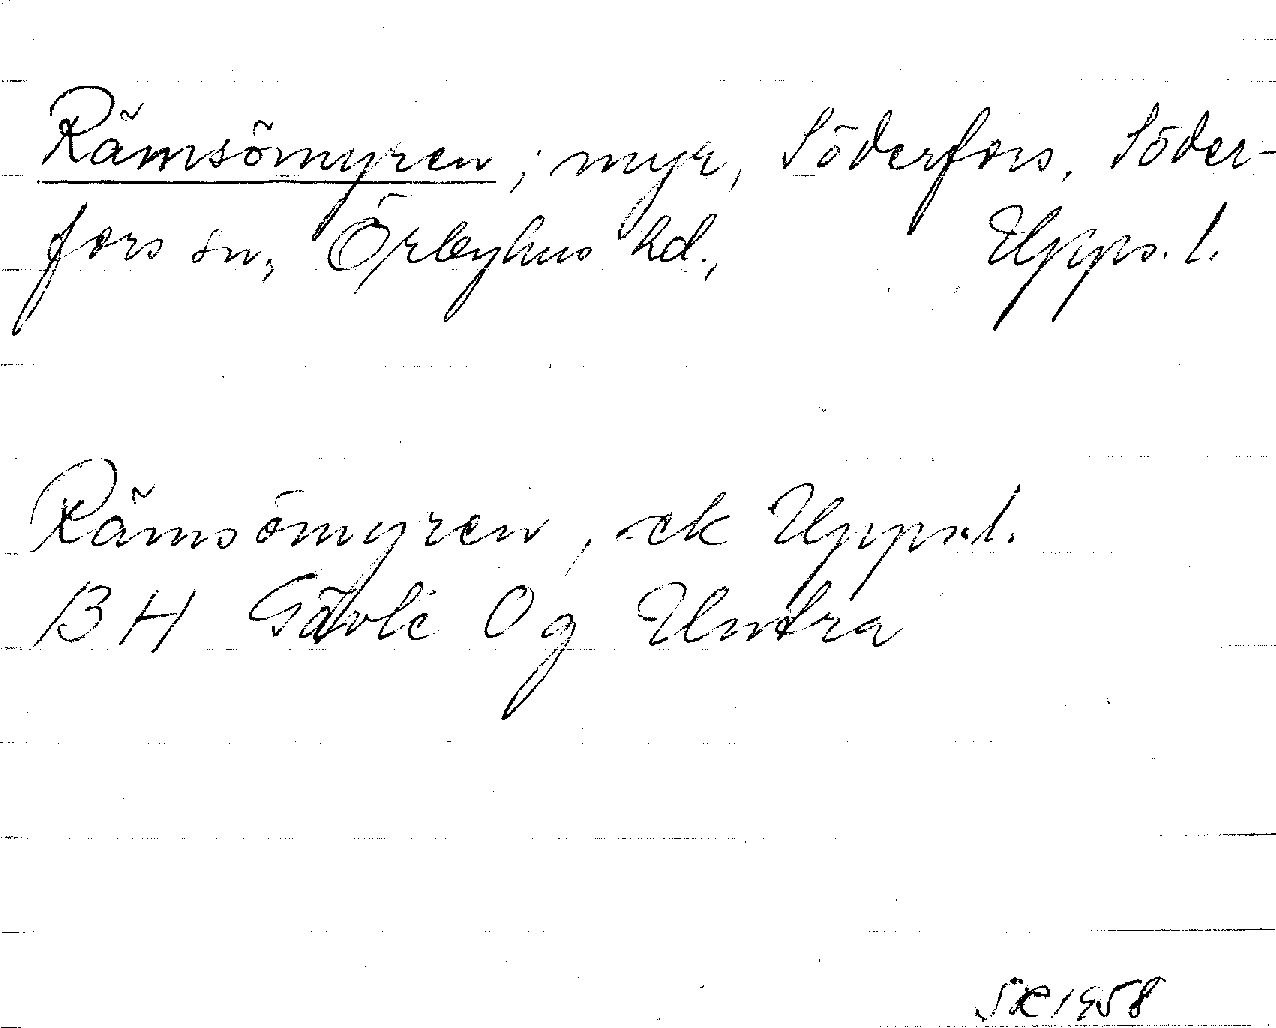 Rämsömyren, myr, Söderfors, Söder-
fors sn, Örbyhus hd., Upps. l.
Rämsömyren, ek Upps. l.
BH Gävle Og Untra
1958